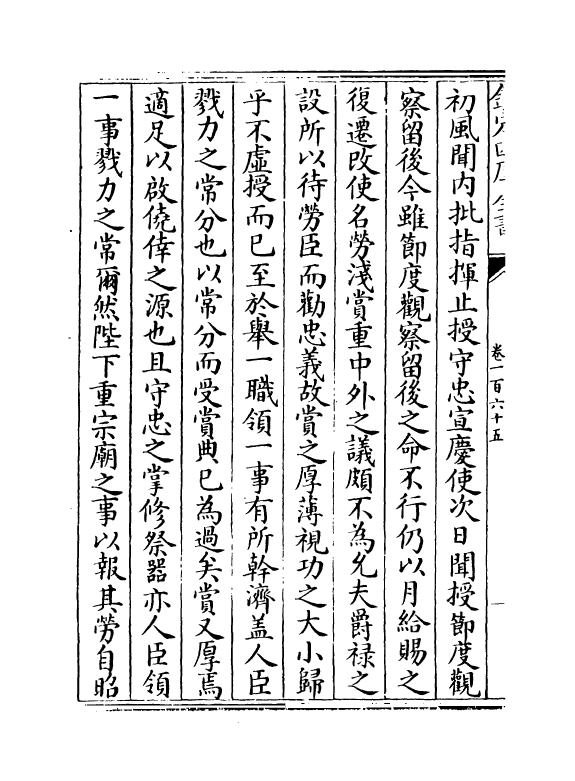 欽定四庫全書
卷一百六十五
初風聞内批指揮止授守忠宣慶使次日聞授節度觀
察留後今雖節度觀察留後之命不行仍以月給賜之
復遷改使名勞淺賞重中外之議頗不為允夫爵禄之
設所以待勞臣而勸忠義故賞之厚薄視功之大小歸
乎不虚授而已至於舉一職領一事有所幹濟盖人臣
戮力之常分也以常分而受賞典已為過矣賞又厚焉
適足以啟僥倖之源也且守忠之掌修祭器亦人臣領
一事戮力之常爾然陛下重宗廟之事以報其勞自昭